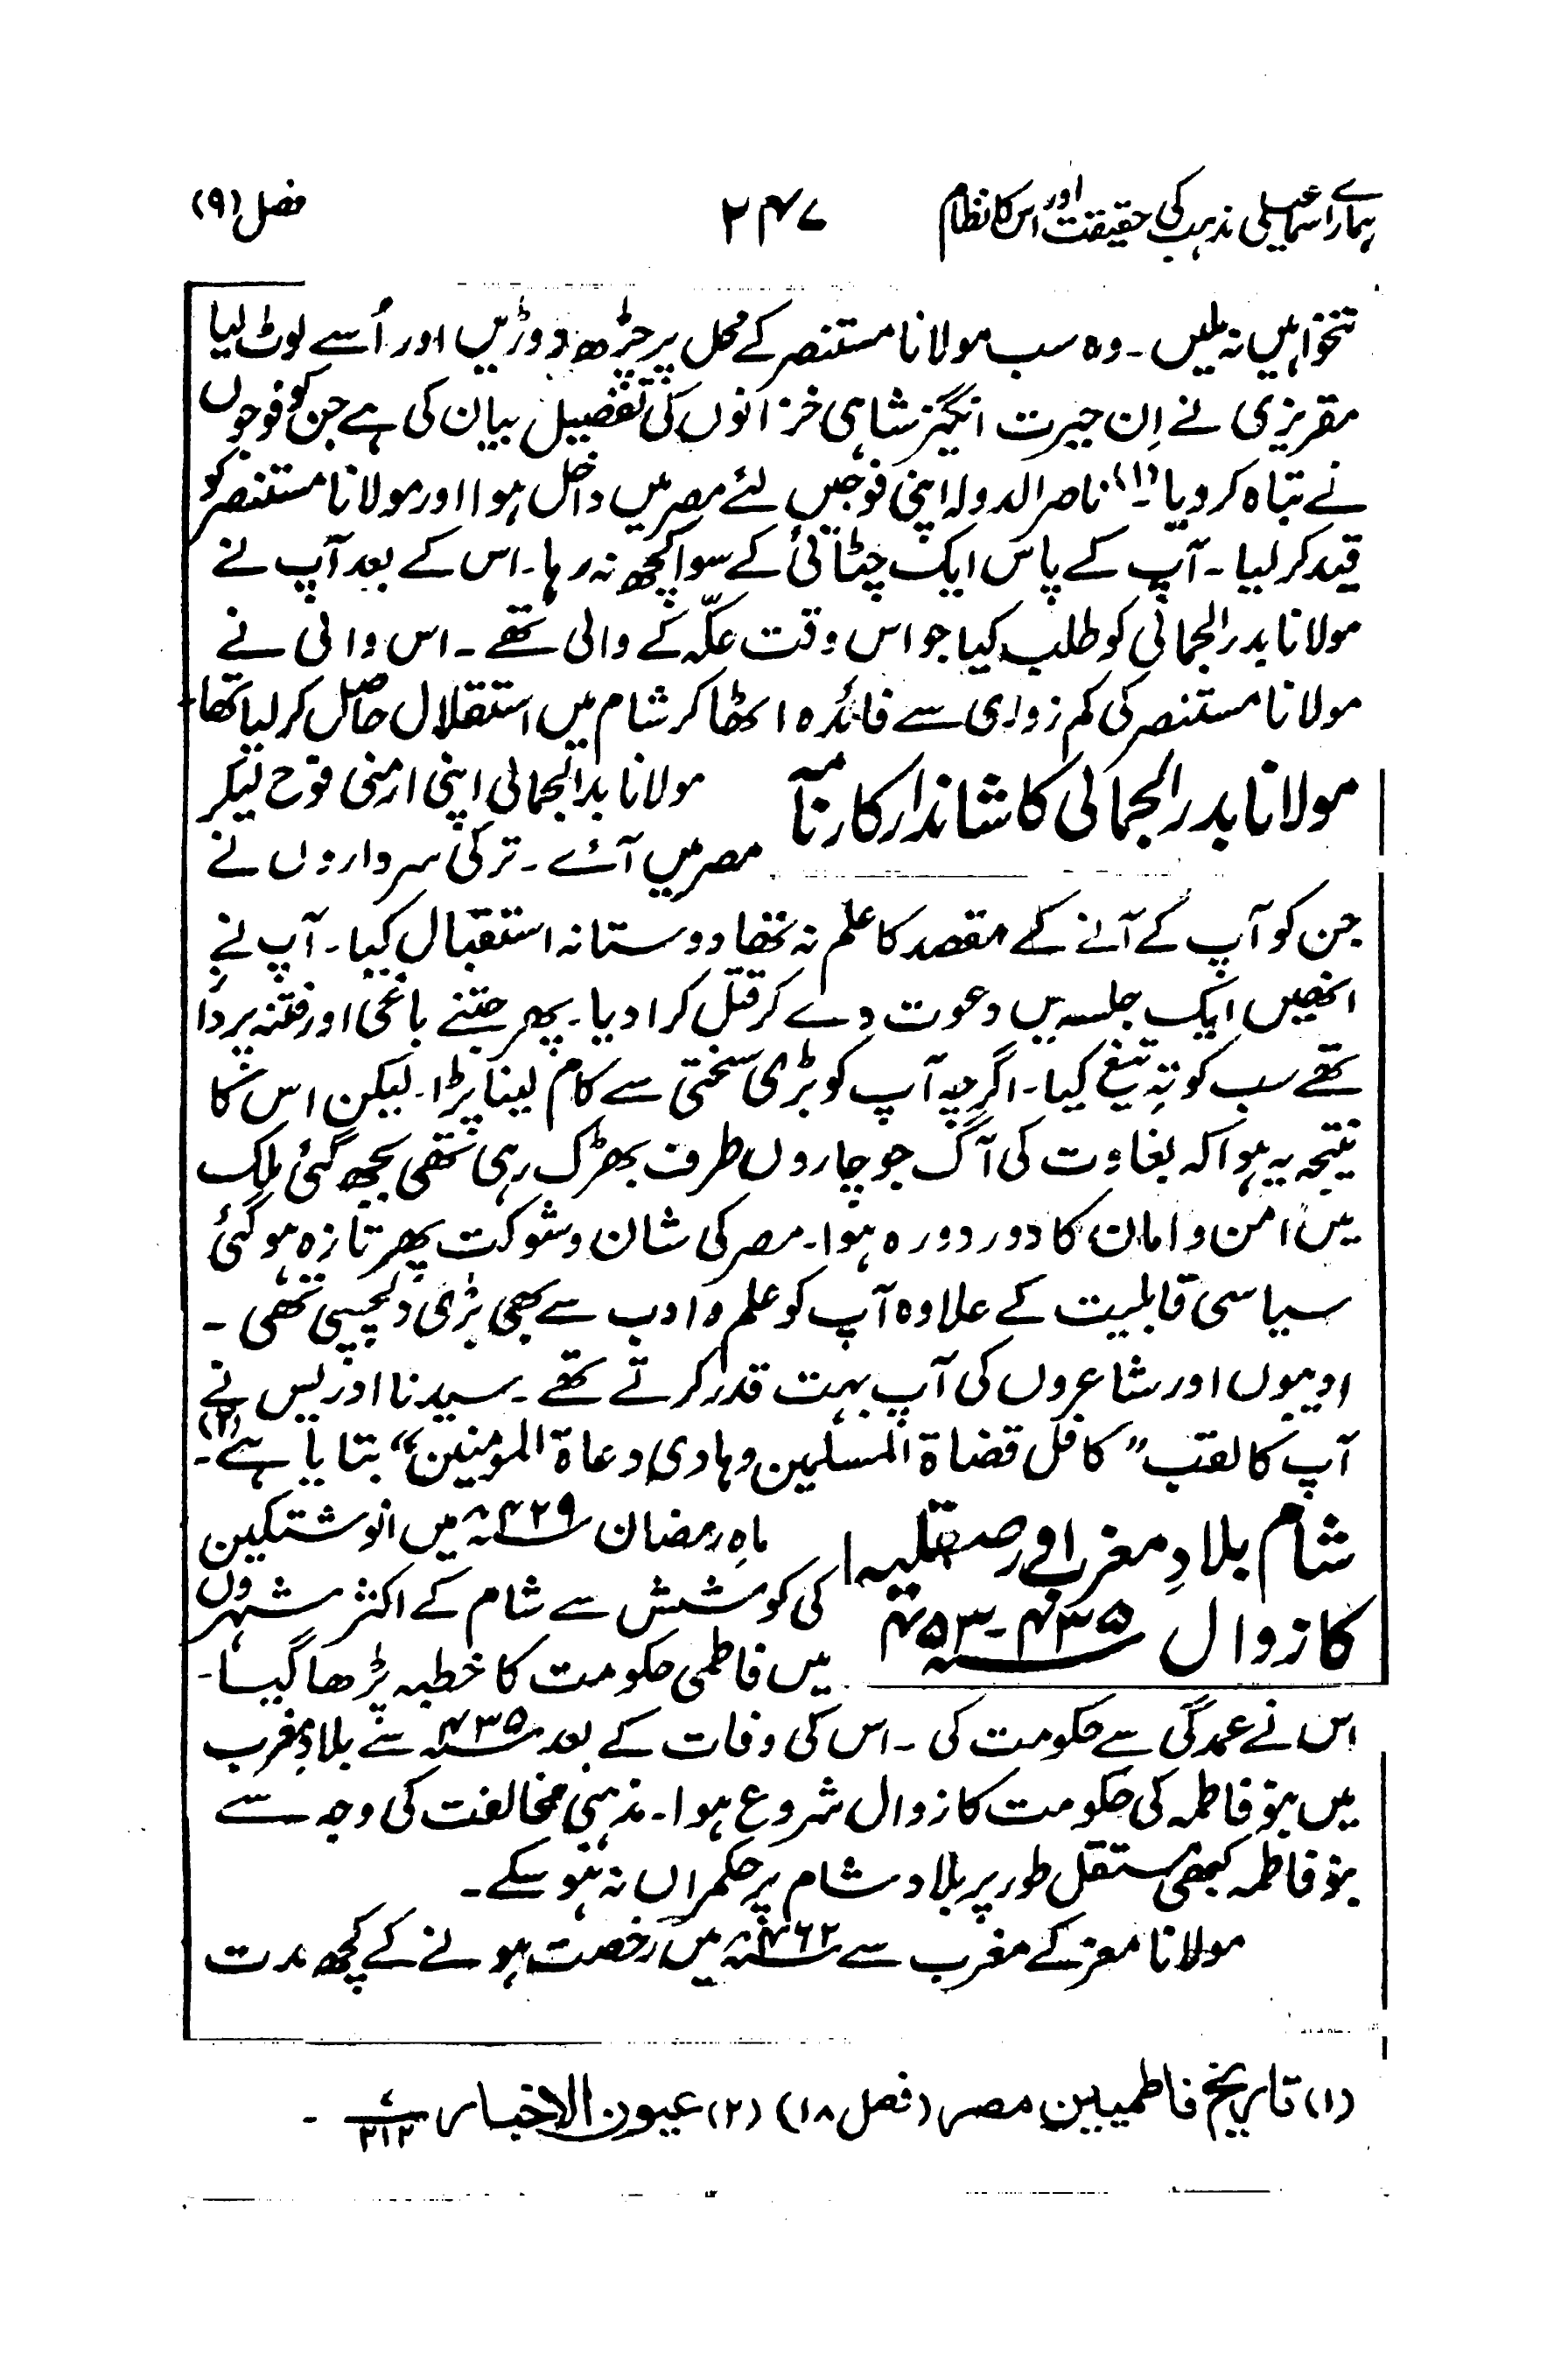 ہمارے اسماعیلی مذہب کی حقیقت اور اس کا نظام ۲۴۷ فصل (۹)
تنخواہیں نہ ملیں ۔ وہ سب مولانا مستنصر کے محل پر چڑھ دوڑیں اور اُسے لوٹ لیا
مقریزی نے اِن حیرت انگیز شاہی خزانوں کی تفصیل بیان کی ہے جن کو فوجوں
نے تباہ کر دیا ۔(۱) ناصر الدولہ اپنی فوجیں لئے مصر میں داخل ہوا اور مولانا مستنصر کو
قید کر لیا ۔ آپ کے پاس ایک چٹائی کے سوا کچھ نہ رہا ۔ اس کے بعد آپ نے
مولانا بدر الجمالی کو طلب کیا جو اس وقت عکّہ کے والی تھے ۔ اس والی نے
مولانا مستنصر کی کم زوری سے فائدہ اٹھا کر شام میں استقلال حاصل کر لیا تھا ۔
مولانا بدر الجمالی کا شاندار کارنامہ
مولانا بدر الجمالی اپنی ارمنی فوج لیکر
مصر میں آئے ۔ ترکی سرداروں نے
جن کو آپ کے آنے کے مقصد کا علم نہ تھا دوستانہ استقبال کیا ۔ آپ نے
انھیں ایک جلسہ میں دعوت دے کر قتل کرا دیا ۔ پھر جتنے باغی اور فتنہ پرداز
تھے سب کو تہِ تیغ کیا ۔ اگرچہ آپ کو بڑی سختی سے کام لینا پڑا ۔ لیکن اس کا
نتیجہ یہ ہوا کہ بغاوت کی آگ جو چاروں طرف بھڑک رہی تھی بجھ گئی ملک
میں امن و امان کا دور دورہ ہوا ۔ مصر کی شان و شوکت پھر تازہ ہو گئی
سیاسی قابلیت کے علاوہ آپ کو علم و ادب سے بھی بڑی دلچسپی تھی ۔
ادیبوں اور شاعروں کی آپ بہت قدر کرتے تھے ۔ سیدنا ادریس نے
آپ کا لقب ”کافل قضاۃ المسلمین وہادی دعاۃ المومنین“ بتایا ہے ۔(۲)
شام بلادِ مغرب اور صقلیہ
کا زوال ۴۳۵ - ۴۵۳ سنہ
ماہِ رمضان ۴۲۹ سنہ میں انوشتکین
کی کوشش سے شام کے اکثر شہروں
میں فاطمی حکومت کا خطبہ پڑھا گیا ۔
اس نے عمدگی سے حکومت کی ۔ اس کی وفات کے بعد ۴۳۵ سنہ سے بلادِ مغرب
میں بنو فاطمہ کی حکومت کا زوال شروع ہوا ۔ مذہبی مخالفت کی وجہ سے
بنو فاطمہ کبھی مستقل طور پر بلاد شام پر حکمراں نہ ہو سکے ۔
مولانا معز کے مغرب سے ۴۶۲ سنہ میں رخصت ہونے کے کچھ مدت
(۱) تاریخ فاطمیین مصر (فصل ۱۸) (۲) عیون الاخبار ۷/۲۱۲ ۔